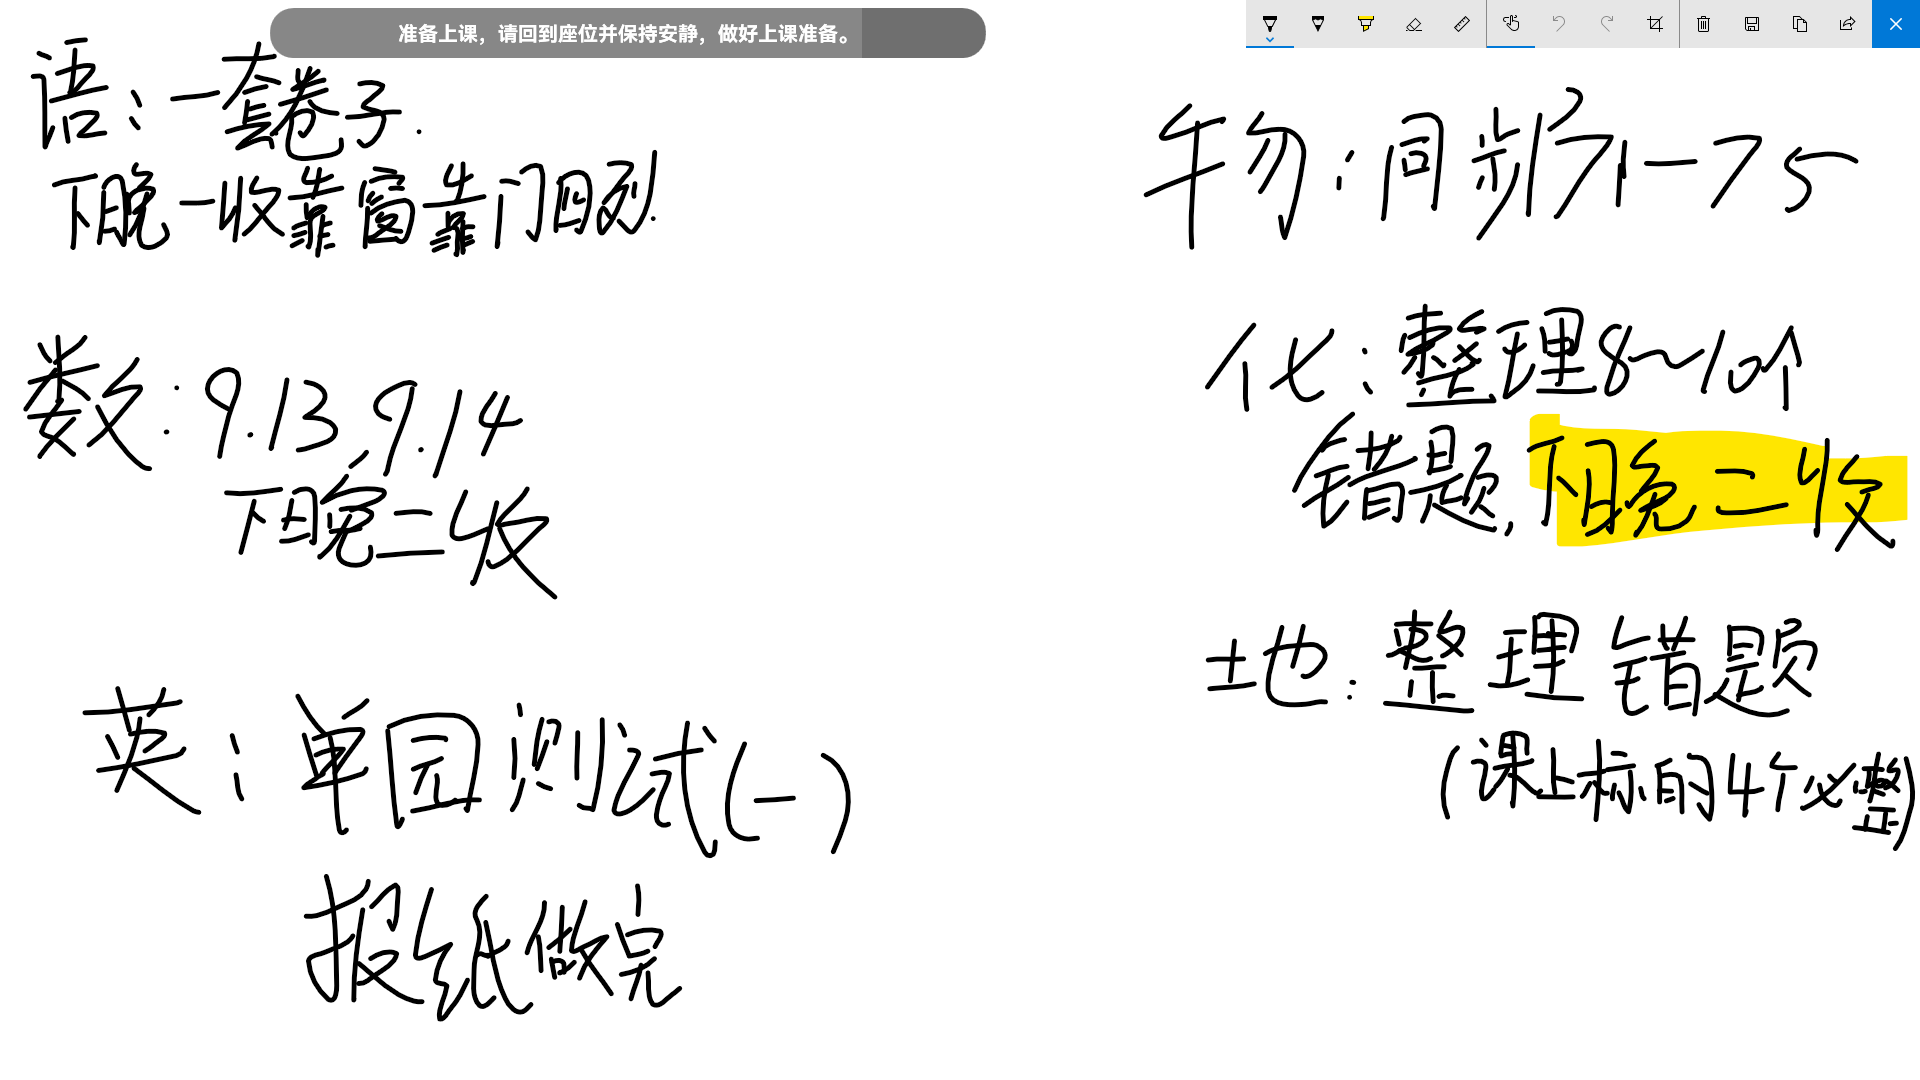 准备上课，请回到座位并保持安静，做好上课准备。
语：一套卷子.
下晚一收靠窗靠门四列.
数：9.13、9.14
下晚二收
英：单园测试(一)
报纸做完
物：同步71-75
化：整理8~10个
错题,下晚二收
地：整理错题
(课上标的4个必整)